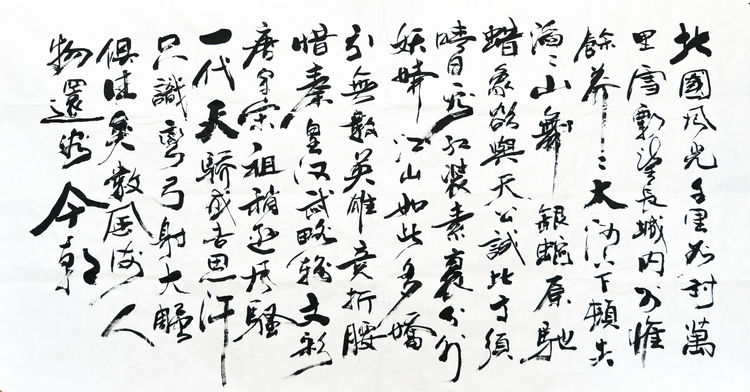 北國风光千里冰封萬
里雪飘望長城内外惟
餘莽〻大河上下頓失
滔〻山舞銀蛇原馳
蜡象欲與天公試比高須
晴日看红装素裹分外
妖嬈江山如此多嬌
引無數英雄竞折腰
惜秦皇汉武略输文彩
唐宗宋祖稍逊风騷
一代天骄成吉思汗
只識彎弓射大鵰
俱往矣數風流人
物還看今朝